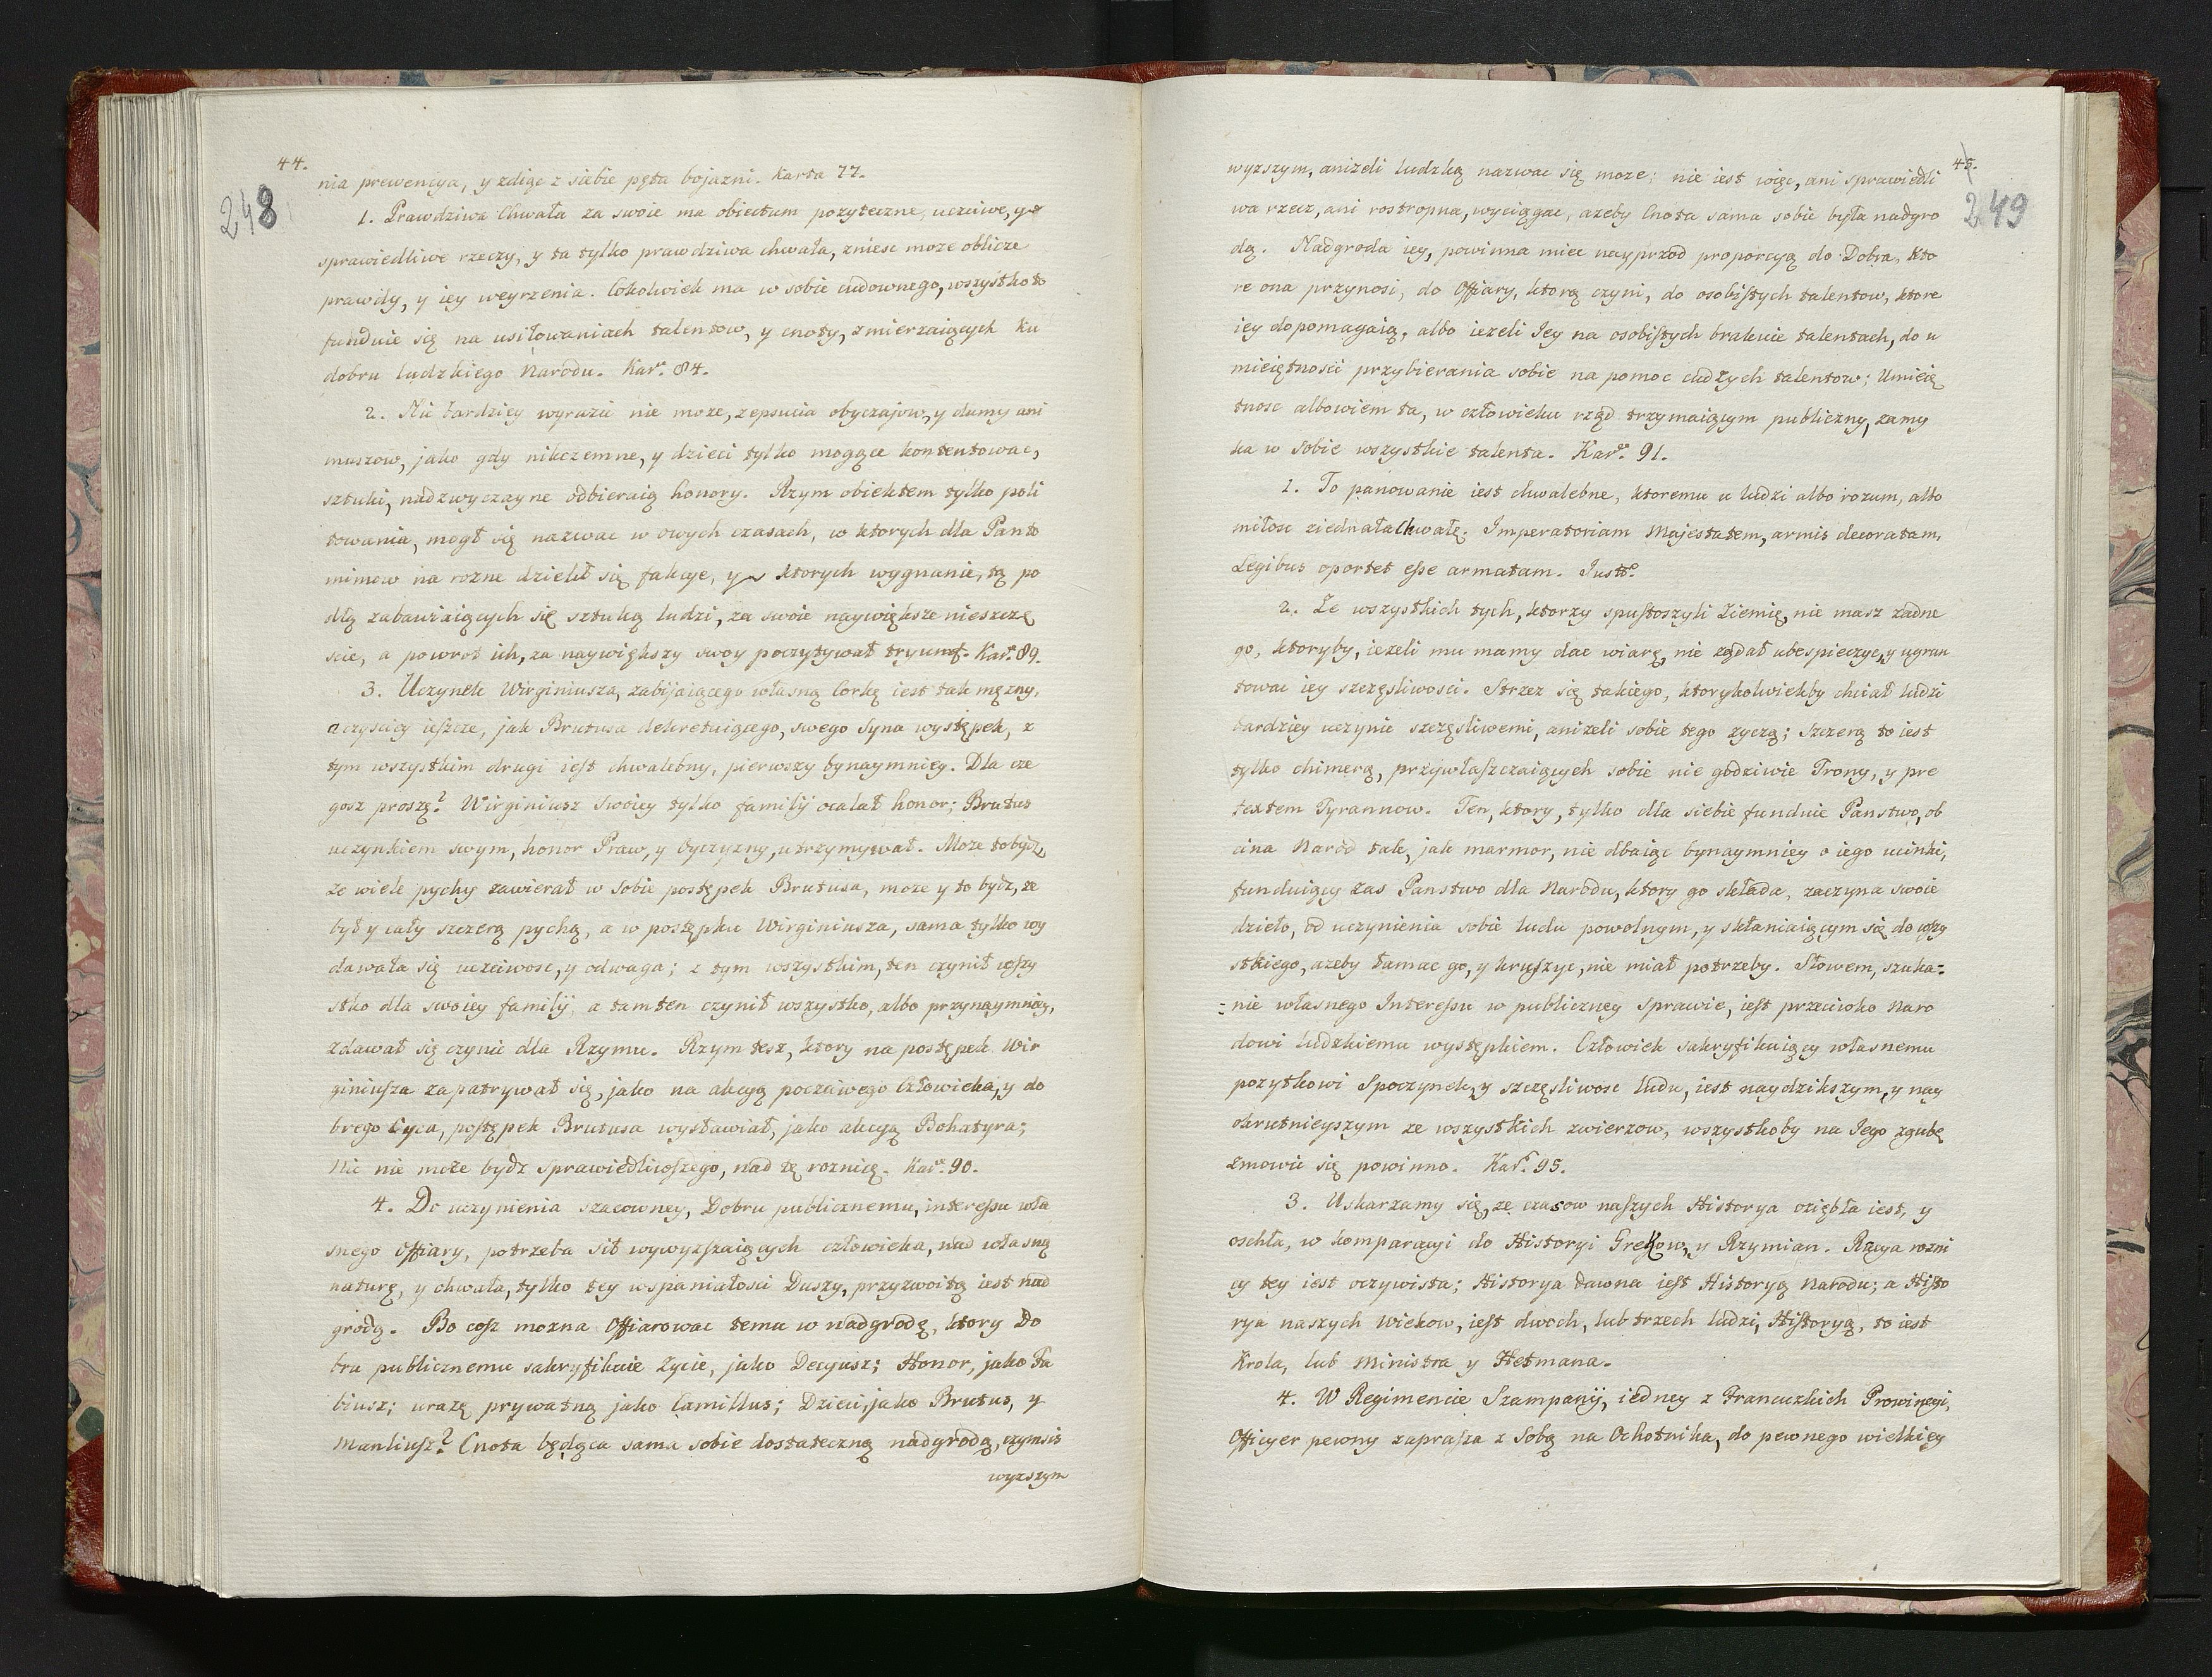 44.
248
nia prewencya, y zdiąc z siebie pęta bojazni. Karta 77.
1. Prawdziwa Chwała za swoie ma obiectum pozyteczne, uczciwe, y
sprawiedliwe rzeczy, y ta tylko prawdziwa chwała, zniesc moze oblicze
prawdy, y iey weyrzenia. Cokolwiek ma w sobie cudownego, wszystko to
funduie się na usiłowaniach talentow, y cnoty, zmierzaiących ku
dobru ludzkiego Narodu. Kar. 84.
2. Nic bardziey wyrazic nie moze, zepsucia obyczajow, y dumy ani
muszow, jako gdy nikczemne, y dzieci tylko mogące kontentowac,
sztuki, nadzwyczayne odbieraią honory. Rzym obiektem tylko poli
towania, mogł się nazwac w owych czasach, w ktorych dla Panto
mimow na rozne dzielił się fakcye, y ktorych wygnanie, tą po
dłą zabawiaiących się sztuką ludzi, za swoie naywiększe nieszczę
scie, a powrot ich, za naywiększy swoy poczytywał tryumf. Kar. 89.
3. Uczynek Wirginiusza, zabijaiącego własną Corkę iest tak męzny,
a czyscicy ieszcze, jak Brutusa dekretuiącego, swego Syna występek, z
tym wszystkim drugi iest chwalebny, pierwszy bynaymniey. Dla cze
gosz proszę? Wirginiusz Swoiey tylko familij ocalał honor; Brutus
uczynkiem swym, honor Praw, y Oyczyzny, utrzymywał. Moze to bydz,
ze wiele pychy zawierał w Sobie postępek Brutusa, moze y to bydz, ze
był y cały szczerą pychą, a w postępku Wirginiusza, sama tylko wy
dawała się uczciwosc, y odwaga; z tym wszystkim, ten czynił wszy
stko dla swoiey familij, a tamten czynił wszystko, albo przynaymniey,
zdawał się czynic dla Rzymu. Rzym tesz, ktory na postępek Wir
giniusza zapatrywał się, jako na akcyą poczciwego Człowieka, y do
brego Oyca, postępek Brutusa wystawiał, jako akcyą Bohatyra;
Nic nie może bydz Sprawiedliwszego, nad tę roznicę. Kar. 90.
4. Do uczynienia szacowney, Dobru publicznemu, interessu wła
snego Offiary, potrzeba sił wywyzszaiących człowieka, nad własną
naturę, y chwała, tylko tey wspaniałosci Duszy, przyzwoitą iest nad
grodą. Bo cosz mozna Offiarowac temu w nadgrodę, ktory Do
bru publicznemu sakryfikuie Zycie, jako Decyusz; Honor, jako Fa
biusz; urazę prywatną jako Camillus; Dzieci, jako Brutus, y
Manliusz? Cnota będąca sama sobie dostateczną nadgrodą, czymsis
wyzszym
45.
249
wyzszym, anizeli ludzką nazwac się moze; nie iest więc, ani sprawiedli
wa rzecz, ani rostropna, wyciągac, azeby Cnota sama sobie była nadgro
dą. Nadgroda iey, powinna miec nayprzod proporcyą do Dobra, kto
re ona przynosi, do Offiary, ktorą czyni, do osobistych talentow, ktore
iey dopomagaią, albo iezeli Jey na osobistych brakuie talentach, do u
mieiętnosci przybierania sobie na pomoc cudzych talentow; Umieię
tnosc albowiem ta, w człowieku rząd trzymaiącym publiczny, zamy
ka w Sobie wszystkie talenta. Kar. 91.
1. To panowanie iest chwalebne, ktoremu u ludzi albo rozum, albo
miłosc ziednała Chwałę. Imperatoriam Majestatem, armis decoratam,
Legibus oportet esse armatam. Just.
2. Ze wszystkich tych, ktorzy spustoszyli Ziemię, nie masz zadne
go, ktoryby, iezeli mu mamy dac wiarę, nie ządał ubespieczyc, y ugrun
towac iey szczęsliwosci. Strzez się takiego, ktorykolwiekby chciał ludzi
bardziey uczynic szczęsliwemi, anizeli sobie tego zyczą; Szczerą to iest
tylko chimerą, przywłaszczaiących sobie nie godziwie Trony, y pre
textem Tyrannow. Ten, ktory, tylko dla siebie funduie Panstwo, ob
cina Narod tak, jak marmor, nie dbaiąc bynaymniey o iego ucinki,
funduiący zas Panstwo dla Narodu, ktory go składa, zaczyna swoie
dzieło, od uczynienia sobie ludu powolnym, y skłaniaiącym się do wszy
stkiego, azeby łamac go, y kruszyc, nie miał potrzeby. Słowem, szuka=
=nie własnego Interessu w publiczney Sprawie, iest przeciwko Naro
dowi ludzkiemu występkiem. Człowiek sakryfikuiący własnemu
pozytkowi Spoczynek, y szczęsliwosc ludu, iest naydzikszym, y nay
okrutnieyszym ze wszystkich zwierzow, wszystkoby na Jego zgubę
zmowic się powinno. Kar. 95.
3. Uskarzamy się, ze czasow naszych Historya oziębła iest, y
oschła, w komparacyi do Historyi Grekow, y Rzymian. Racya rozni
cy tey iest oczywista; Historya dawna iest Historyą Narodu; a Histo
rya naszych Wiekow, iest dwoch, lub trzech ludzi, Historyą, to iest
Krola, lub Ministra y Hetmana.
4. W Regimencie Szampanij, iedney z Francuzkich Prowincyi,
Officyer pewny zaprasza z Sobą na Ochotnika, do pewnego wielkiey